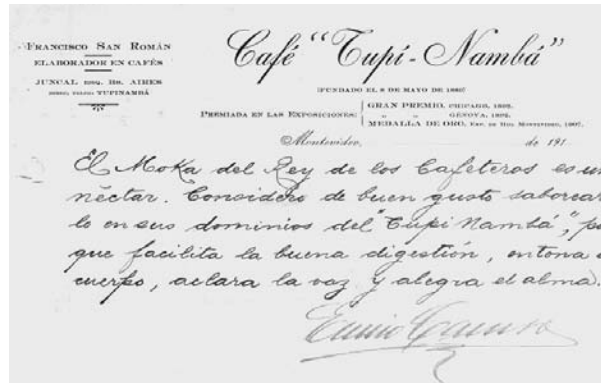 FRANCISCO SAN ROMÁN
ELABORADOR EN CAFÉS
JUNCAL ESQ. BS. AIRES
TUPINAMBÁ
Café "Tupí-Nambá"
(FUNDADO EL 8 DE MAYO DE
PREMIADA EN LAS EXPOSICIONES:
GRAN PREMIO, CHICAGO,
" " GÉNOVA,
MEDALLA DE ORO,
Montevideo, de 191
El Moka del Rey de los Cafeteros es un
néctar. Considero de buen gusto saborear
lo en sus dominios del "Tupí Nambá",
que facilita la buena digestión, entona
cuerpo, aclara la voz y alegra el alma.